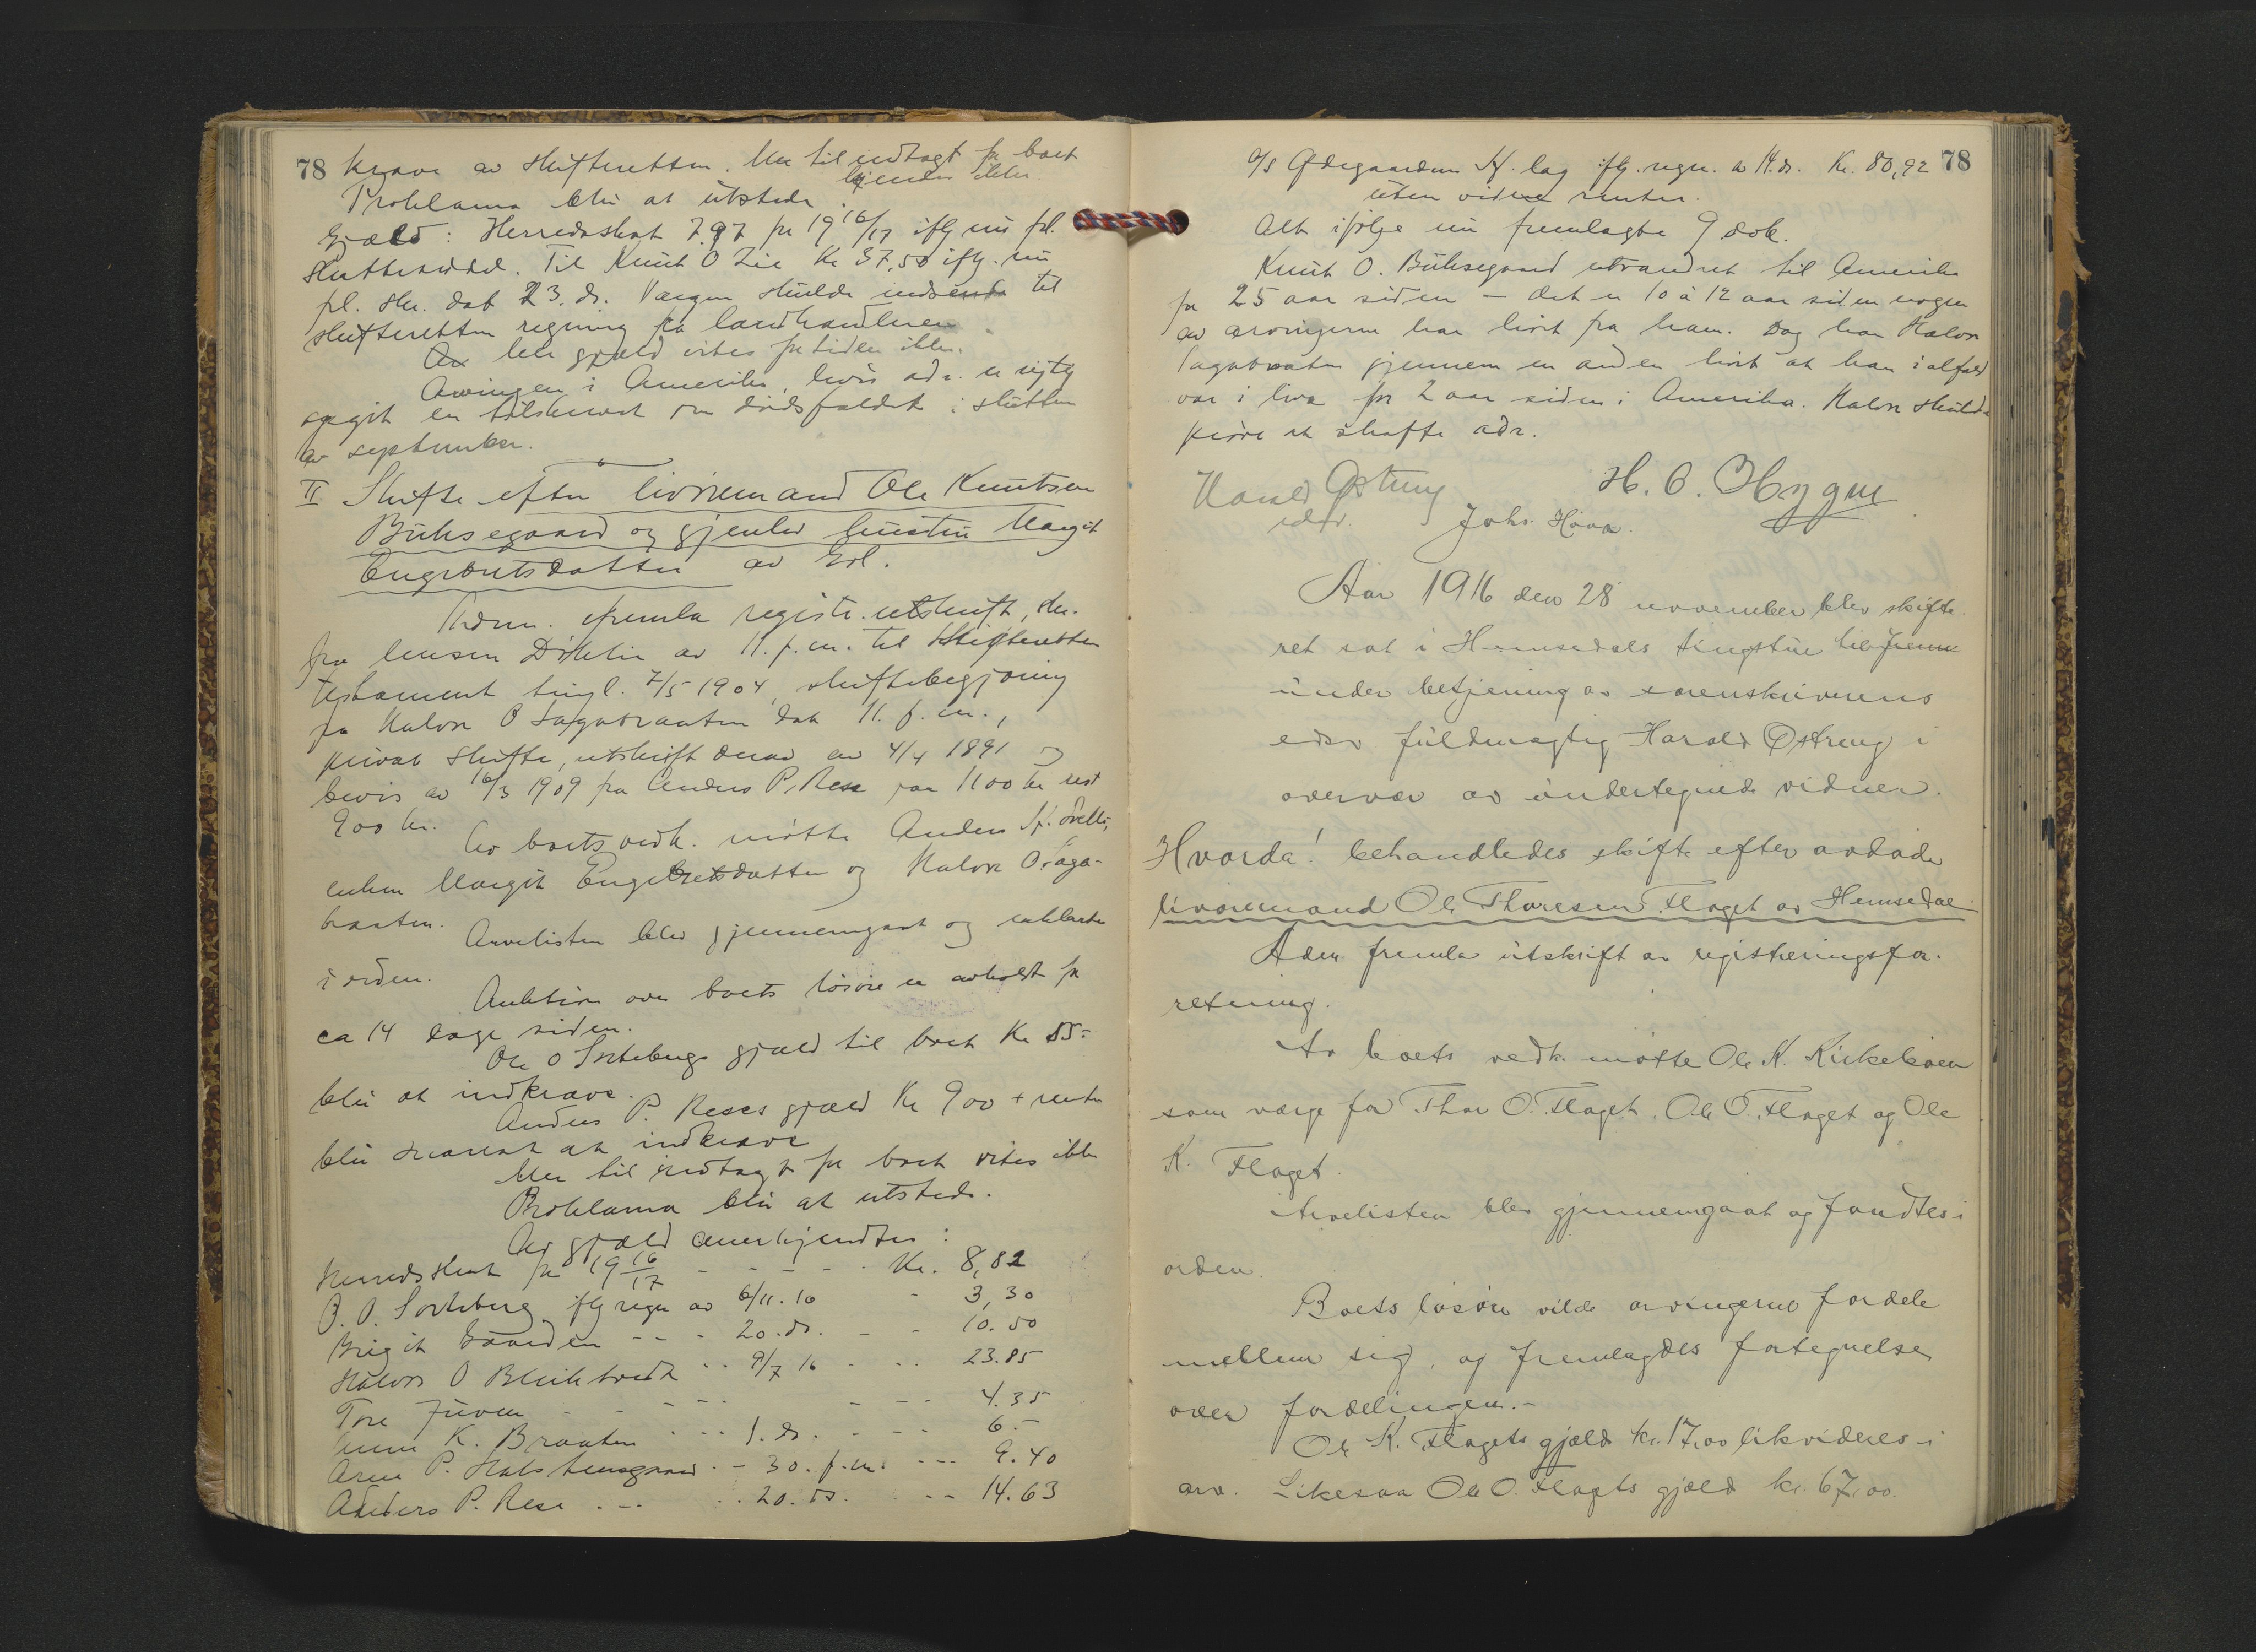 78 kræve av skifteretten. Mer til indtægt for boet
kjendes ikke.
Proklama blir at utstede.
Gjæld: Herredsskat 7.97 for 19 16/17 ifly nu frl.
skatteseddel. Til Knut O Lie Kr 37,50 ifly. nu
frl. skr. dat 23. ds. Værgen skulde indsende til
skifteretten regning fra landhandleren.
Av hele gjæld vites for tiden ikke.
Arvingen i Amerika, hvis adr. er rigtig
opgit er tilskrevet om dødsfaldet i slutten
av september.
II Skifte efter livøremand Ole Knutsen
Buksegaard og gjenlev hustru Margit
Engebretsdatter av Gol.
Adm. fremla registr. utskrift, skr.
fra lensm Døhlie av 11. f.m. til skifteretten
testament tingl. 7/5 1904, skiftebegjæring
fra Halvor O Sagabraaten dat 11. f.m.,
privat skifte, utskrift derav av 4/4 1891 og
bevis av 16/3 1909 fra Anders P. Rese paa 1100 kr rest
900 kr.
Av boets vedk. møtte Anders
enken Margit Engebretsdatter og Halvor O. Saga-
braaten.
Arvelisten blev gjennemgaat og erklært
i orden.
Auktion over boets løsøre er avholdt for
ca 14 dage siden.
Ole O Sorteberg gjæld til boet Kr 55.-
blir at indkræve.
Anders P. Reses gjæld Kr 900 + renter
blir snarest at indkræve
Mer til indtægt for boet vites ikke
Proklama blir at utstede.
Av gjæld anerkjendtes:
Herredsskat for 19 16/17 - - - - - Kr. 8,82
O. O. Sorteberg ifly regn av 6/11. 16 - 3,30
Birgit - - - 20. ds. - - 10.50
Halvor O - - 9/7 16 - - - 23.85
Tore Juven - - - - - - - 4.35
Anne K. Braaten - - - 1. ds. - - - 6.-
Arne P. - - 30. f.m. - - - 9.40
Anders P. Rese - - - - 20. ds. - - - 14.63
78
A/S Ødegaardens H. lag ifly. regn. av 14. ds. Kr. 80,92
uten videre renter.
Alt ifølge nu fremlagte 9 dok.
Knut O. Buksegaard utvandret til Amerika
for 25 aar siden – det er 10 à 12 aar siden nogen
av arvingerne har hørt fra ham. Dog har Halvor
Sagabraaten gjennem en anden hørt at han ialfald
var i live for 2 aar siden i Amerika. Halvor skulde
prøve at skaffe adr.
Harald Østreng
edsv.
Johs. Hova.
H. O. Hygne
Aar 1916 den 28 november blev skifte-
ret sat i Hemsedals tingstue
under betjening av sorenskriverens
edsv fuldmægtig Harald Østreng i
overvær av undertegnede vidner.
Hvorda! behandledes skifte efter avdøde
livøremand Ole Thoresen Flaget av Hemsedal
Adm. fremla utskrift av registreringsfor-
retning.
Av boets vedk. møtte Ole K. Kirkebøen
som værge for Thor O. Flaget, Ole O. Flaget og Ole
K. Flaget.
Arvelisten blev gjennemgaat og fandtes i
orden.
Boets løsøre vilde arvingerne fordele
mellem sig, og fremlagdes fortegnelse
over fordelingen.-
Ole K. Flagets gjæld kr. 17,00 likvideres i
arv. Likesaa Ole O. Flagets gjæld kr. 67,00.